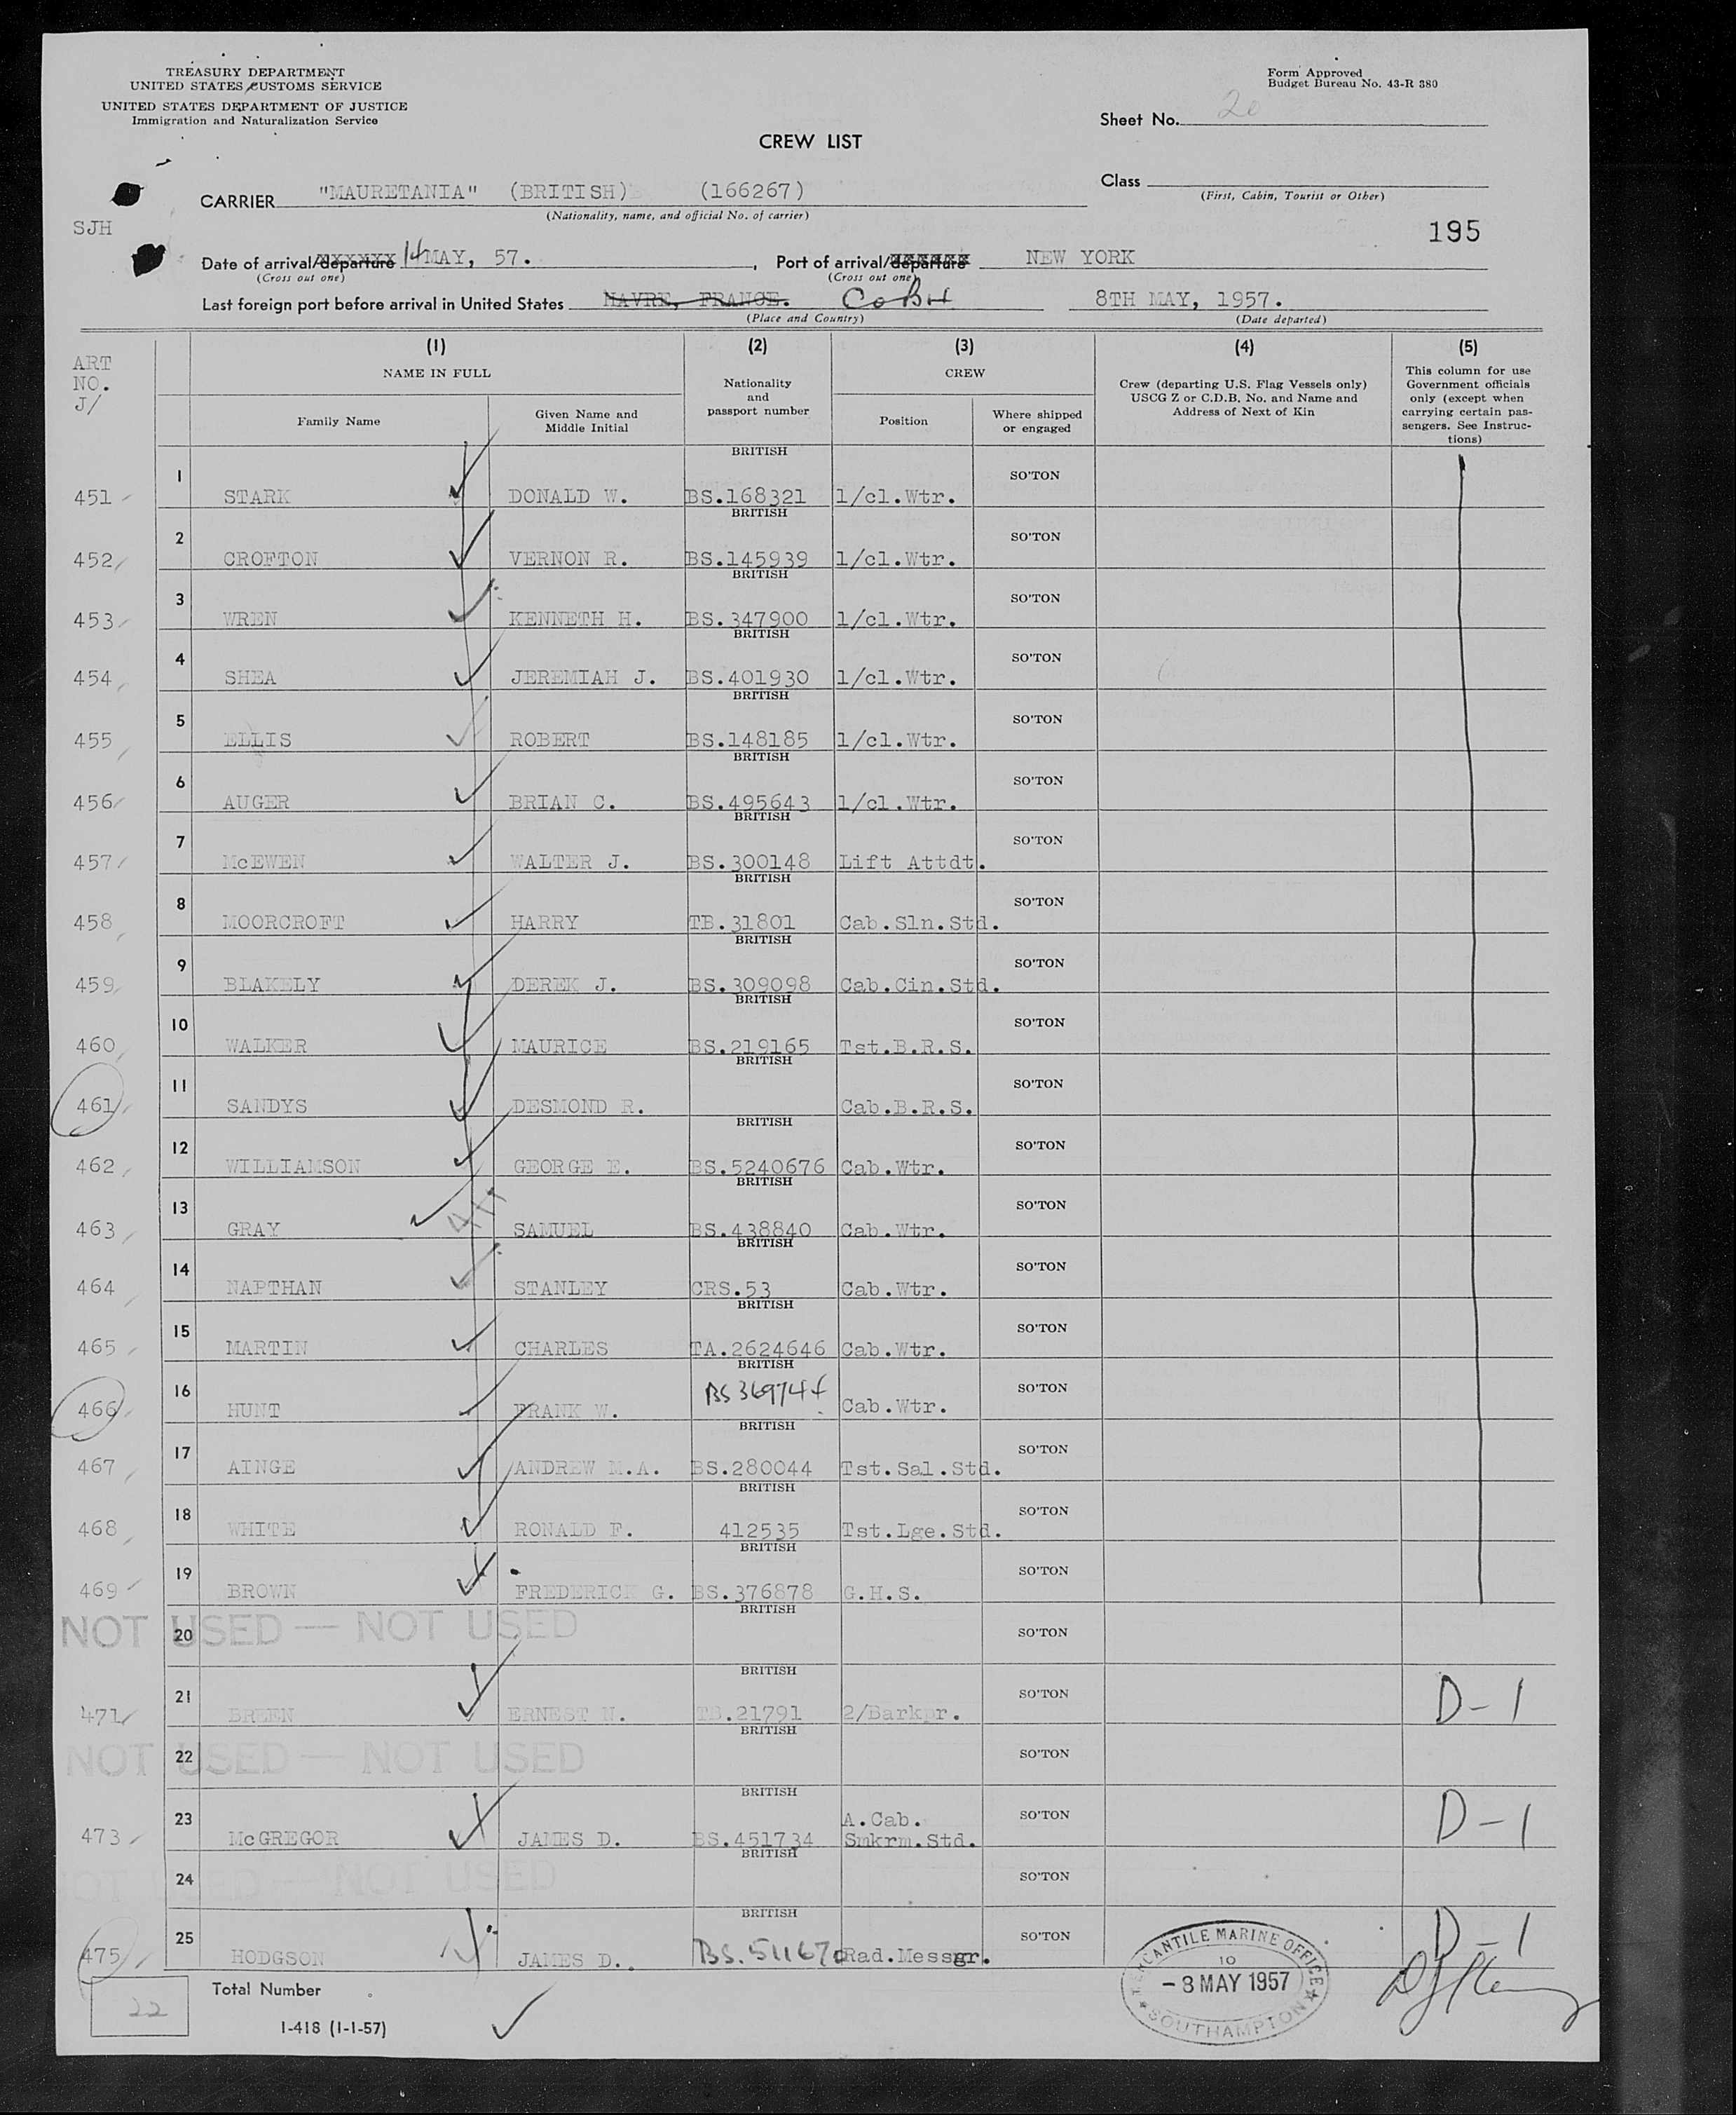 TREASURY DEPARTMENT
UNITED STATES CUSTOMS SERVICE
UNITED STATES DEPARTMENT OF JUSTICE
Immigration and Naturalization Service
Form Approved
Budget Bureau No. 43-R 380
Sheet No. 20
CREW LIST
Class
(First, Cabin, Tourist or Other)
CARRIER "MAURETANIA" (BRITISH) (166267)
(Nationality, name, and official No. of carrier)
SJH
195
Date of arrival/departure 14 MAY, 57. , Port of arrival/departure NEW YORK
(Cross out one) (Cross out one)
Last foreign port before arrival in United States HAVRE, FRANCE. CoBH 8TH MAY, 1957.
(Place and Country) (Date departed)
ART
NO.
J/
(1) (2) (3) (4) (5)
NAME IN FULL
Family Name
Given Name and
Middle Initial
Nationality
and
passport number
CREW
Position
Where shipped
or engaged
Crew (departing U.S. Flag Vessels only)
USCG Z or C.D.B. No. and Name and
Address of Next of Kin
This column for use
Government officials
only (except when
carrying certain pas-
sengers. See Instruc-
tions)
BRITISH
451 1 STARK DONALD W. BS.168321 1/cl.Wtr. SO'TON
BRITISH
452 2 CROFTON VERNON R. BS.145939 1/cl.Wtr. SO'TON
BRITISH
453 3 WREN KENNETH H. BS.347900 1/cl.Wtr. SO'TON
BRITISH
454 4 SHEA JEREMIAH J. BS.401930 1/cl.Wtr. SO'TON
BRITISH
455 5 ELLIS ROBERT BS.148185 1/cl.Wtr. SO'TON
BRITISH
456 6 AUGER BRIAN C. BS.495643 1/cl.Wtr. SO'TON
BRITISH
457 7 McEWEN WALTER J. BS.300148 Lift Attdt. SO'TON
BRITISH
458 8 MOORCROFT HARRY TB.31801 Cab.Sln.Std. SO'TON
BRITISH
459 9 BLAKELY DEREK J. BS.309098 Cab.Cin.Std. SO'TON
BRITISH
460 10 WALKER MAURICE BS.219165 Tst.B.R.S. SO'TON
BRITISH
461 11 SANDYS DESMOND R. Cab.B.R.S. SO'TON
BRITISH
462 12 WILLIAMSON GEORGE E. BS.5240676 Cab.Wtr. SO'TON
BRITISH
463 13 GRAY SAMUEL BS.438840 Cab.Wtr. SO'TON
BRITISH
464 14 NAPTHAN STANLEY CRS.53 Cab.Wtr. SO'TON
BRITISH
465 15 MARTIN CHARLES TA.2624646 Cab.Wtr. SO'TON
BRITISH
466 16 HUNT FRANK W. Cab.Wtr. SO'TON
BRITISH
467 17 AINGE ANDREW M.A. BS.280044 Tst.Sal.Std. SO'TON
BRITISH
468 18 WHITE RONALD F. 412535 Tst.Lge.Std. SO'TON
BRITISH
469 19 BROWN FREDERICK G. BS.376878 G.H.S. SO'TON
BRITISH
NOT USED — NOT USED 20 SO'TON
BRITISH
471 21 BREEN ERNEST N. TB.21791 2/Barkpr. SO'TON D-1
BRITISH
NOT USED — NOT USED 22 SO'TON
BRITISH
473 23 McGREGOR JAMES D. BS.451734 A.Cab. Smkrm.Std. SO'TON D-1
BRITISH
NOT USED — NOT USED 24 SO'TON
BRITISH
475 25 HODGSON JAMES D. Rad.Messgr. SO'TON D-1
22 Total Number
I-418 (1-1-57)
MERCANTILE MARINE OFFICE
10
-8 MAY 1957
SOUTHAMPTON